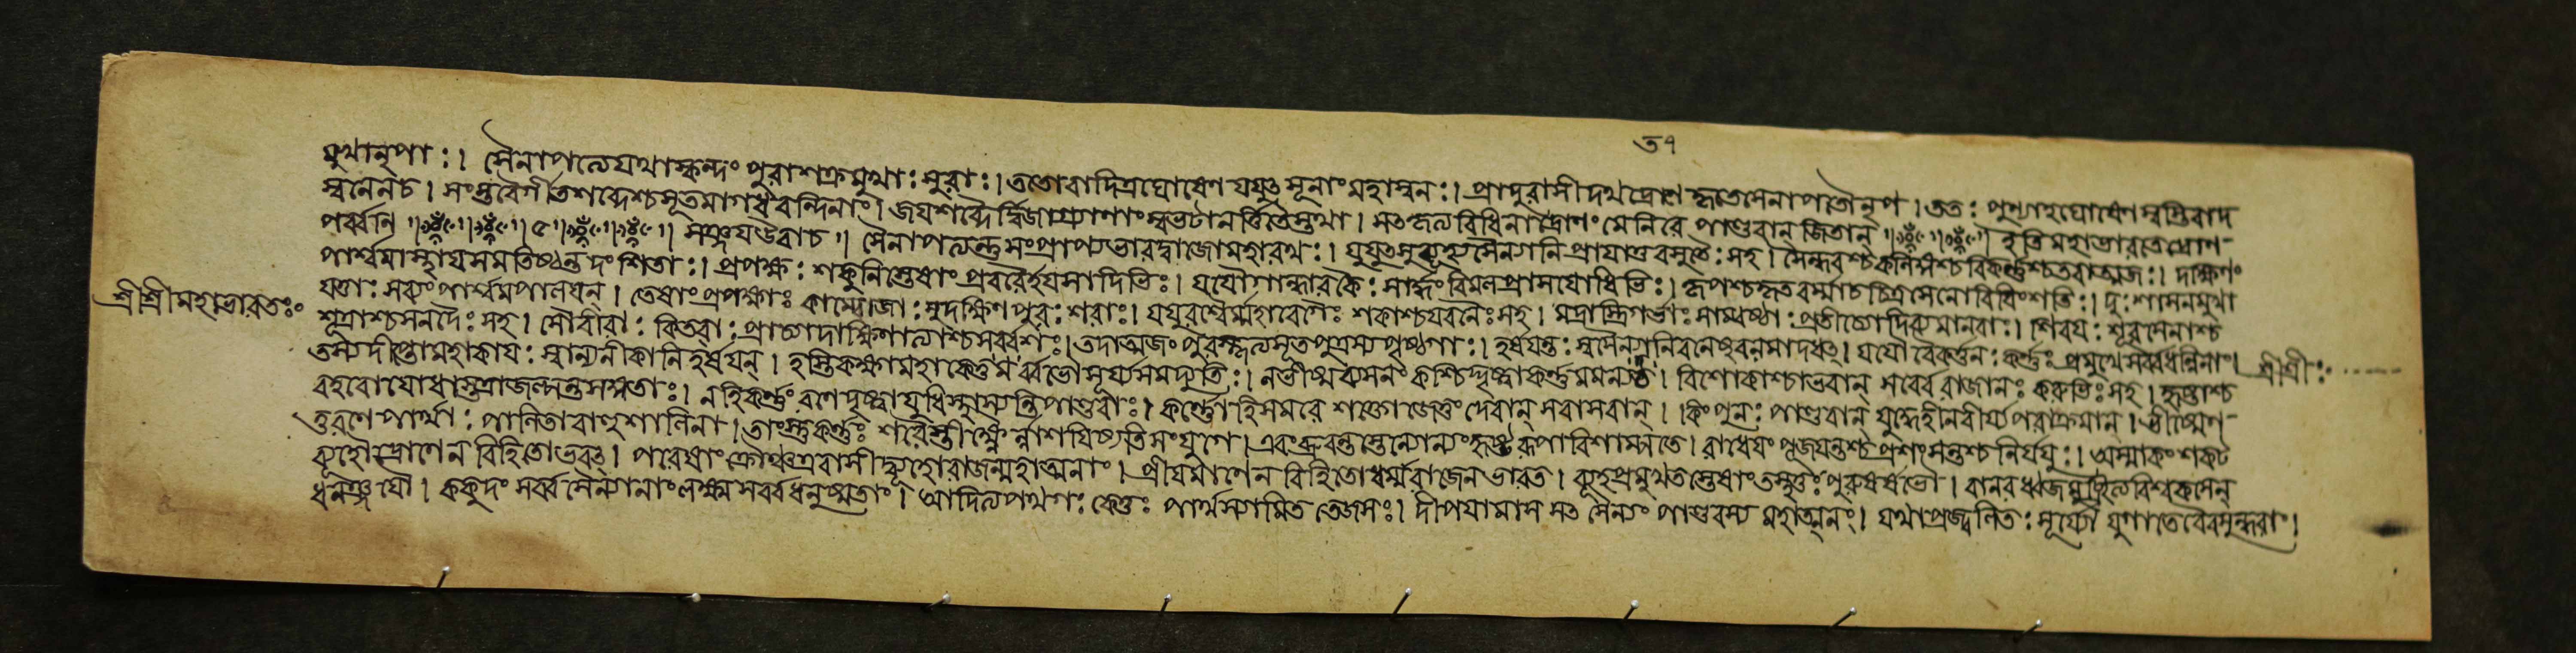 ৩৭
মুখানৃপাঃ। সৈনাপত্যেযথাস্কন্দং পুরাশক্রমুখাঃ সুরাঃ। ততোবাদিত্রঘোষেণ যযুশ্চ সূনাং মহাস্বনঃ। প্রাদুরাসীদথদ্রোণে কৃতেসেনাপতৌনৃপ। ততঃ পুণ্যাহঘোষেণ স্বস্তিবাদ
স্বনেনচ। সংস্তবৈর্গীতশব্দৈশ্চসূতমাগধবন্দিনাং। জযশব্দৈর্দ্বিজাগ্র্যাণাং সুভটানর্ত্তিতৈস্তথা। সতকৃত্যবিধিনাদ্রোণং মেনিরে পাণ্ডবান্ জিতান্॥ ॥ ইতি মহাভারতেদ্রোণ
পর্ব্বণি ॥ ॥ ৫ ॥ ॥ সঞ্জযউবাচ॥ সৈনাপত্যন্তুসংপ্রাপ্যভারদ্বাজোমহারথঃ। যুযুত্সুর্ব্যূহ্যসৈন্যানি প্রাযাত্তবসুতৈঃ সহ। সৈন্ধবশ্চকলিঙ্গশ্চবিকর্ণ্ণশ্চতবাত্মজঃ। দক্ষিণং
পার্শ্বমাস্থাযসমতিষ্ঠন্তদংশিতাঃ। প্রপক্ষঃ শকুনিস্তেষাং প্রবরৈর্হযসাদিভিঃ। যযৌগান্ধারকৈঃ সার্দ্ধং বিমলপ্রাসযোধিভিঃ। কৃপশ্চকৃতবর্ম্মাচচিত্রসেনোবিবিংশতিঃ। দুঃশাসনমুখা
যত্তাঃ সব্যং পার্শ্বমপালযন্। তেষাং প্রপক্ষাঃ কাম্বোজাঃ সুদক্ষিণপুরঃশরাঃ। যযুরশ্বৈর্ম্মহাবেগৈঃ শকাশ্চযবনৈঃ সহ। মদ্রাস্ত্রিগর্ত্তাঃ সাম্বষ্ঠাঃ প্রতীচ্যোদিচ্যমালবাঃ। শিবযঃ শূরসেনাশ্চ
শ্রীশ্রীমহাভারতঃ
শূদ্রাশ্চমলদৈঃ সহ। সৌবীরাঃ কিতবাঃ প্রাচ্যদাক্ষিণাত্যাশ্চসর্ব্বশঃ। তবাত্মজং পুরস্কৃত্যসূতপুত্রস্যপৃষ্ঠগাঃ। হর্ষযন্তঃ স্বসৈন্যানিবলেষুবলমাদধত্। যযৌ বৈকর্ত্তনঃ কর্ণ্ণঃ প্রমুখেসর্ব্বধন্বিনাং।
শ্রীশ্রীঃ
তস্যদীপ্তোমহাকাযঃ স্বান্যনীকানিহর্ষযন্। হস্তিকক্ষ্যামহাকেতুর্ম সূর্য্যসমদ্যুতিঃ। নভীষ্মব্যসনং কশ্চিদ্দৃষ্ট্বাকর্ণ্ণমমন্যত। বিশোকাশ্চাভবান্ সর্ব্বেরাজানঃ কুরুভিঃ সহ। হৃষ্টাশ্চ
বহবোযোধাস্তত্রাজল্পন্তসঙ্গতাঃ। নহিকর্ণ্ণং রণেদৃষ্ট্বাযুধিস্থাস্যন্তিপাণ্ডবাঃ। কর্ণ্ণোহিসমরে শক্তোজেতুং দেবান্ সবাসবান্। কিংপুনঃ পাণ্ডবান্ যুদ্ধেহীনবীর্য্যপরাক্রমান্। ভীষ্মেণ
তুরণেপার্থাঃ পালিতাবাহুশালিনা। তাংস্তুকর্ণ্ণঃ শরৈস্তীক্ষ্ণৈর্ন্নাশযিষ্যতিসংযুগে। এবংব্রুবন্তস্তেন্যোন্যং হৃষ্টরূপাবিশাম্পতে। রাধেযং পূজযন্তশ্চ প্রশংসন্তশ্চ নির্যযুঃ। অস্মাকং শকট
ব্যূহোদ্রোণেন বিহিতোভবত্। পরেষাং ক্রৌঞ্চএবাসীদ্ব্যূহোরাজন্মহাত্মনাং। প্রীযমাণেন বিহিতোধর্ম্মরাজেন ভারত। ব্যূহপ্রমুখতস্তেষাং তস্থতুঃ পুরুষর্ষভৌ। বানরধ্বজমুচ্ছ্রিত্যবিশ্বকসেন
ধনঞ্জযৌ। ককুদং সর্ব্বসৈন্যানাং লক্ষ্মসর্ব্বধনুষ্মতাং। আদিত্যপথগঃ কেতুঃ পার্থস্যামিততেজসঃ। দীপযামাস সৈন্যং পাণ্ডবস্য মহাত্মনং। যথাপ্রজ্বলিতঃ সূর্য্যো যুগান্তেবৈবসুন্ধরাং।